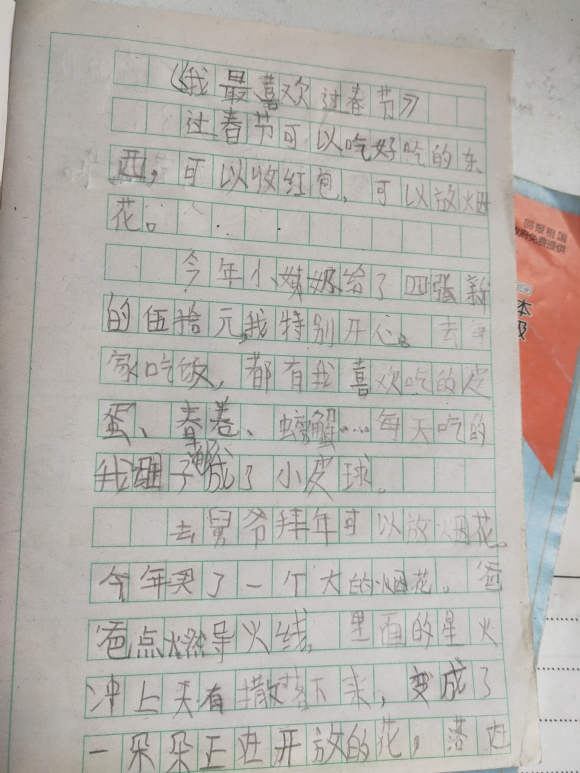 《我最喜欢过春节》
过春节可以吃好吃的东
西，可以收红包，可以放烟
花。
今年小姨奶给了四张新
的伍拾元,我特别开心。去
家吃饭，都有我喜欢吃的皮
蛋、春卷、螃蟹……每天吃的
我肚子成了小皮球。
去舅爷拜年可以放烟花。
今年买了一个大的烟花，爸
爸点燃导火线，里面的星火
冲上天有撒落下来，变成了
一朵朵正在开放的花，落在
回报祖国
政府免费提供
本
级